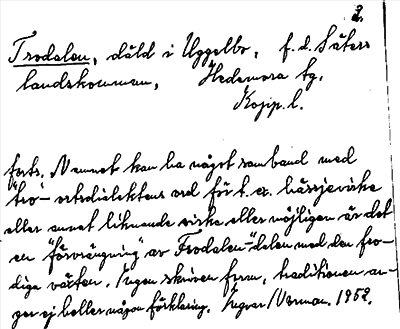 2.
Trodalen, däld i Uggelbo, f. d. Säters
landskommun, Hedemora tg,
Kopp. l.
forts. Namnet kan ha något samband med
"tro"- ortsdialektens ord för t. ex. hässjevirke
eller annat liknande virke eller möjligen är det
en "förvrängning" av "Frodalen" - dalen med den fro-
diga växten. Ingen skriven form, traditionen an-
ger ej heller någon förklaring. Ingvar Norman. 1952.